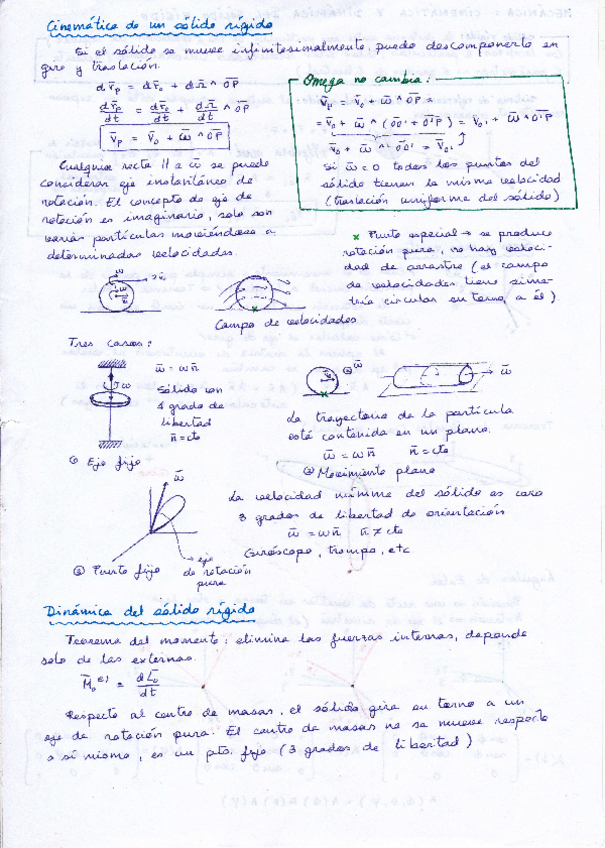 Cinemática de un sólido rígido
Si el sólido se mueve infinitesimalmente, puedo descomponerlo en
giro y traslación.
dr̄p = dr̄o + dΩ̄ ^ OP̄
dr̄p/dt = dr̄o/dt + dΩ̄/dt ^ OP̄
V̄p = V̄o + ω̄ ^ OP̄
Omega no cambia:
V̄p = V̄o + ω̄ ^ OP̄ =
= V̄o + ω̄ ^ (OO' + O'P) = V̄o' + ω̄ ^ O'P
V̄o + ω̄ ^ OO' = V̄o'
Si ω̄ = 0 todos los puntos del
sólido tienen la misma velocidad
(traslación uniforme del sólido)
Cualquier recta || a ω̄ se puede
considerar eje instantáneo de
rotación. El concepto de eje de
rotación es imaginario, solo son
varias partículas moviéndose a
determinadas velocidades.
x Punto especial → se produce
rotación pura, no hay veloci-
dad de arrastre (el campo
de velocidades tiene sime-
tría circular en torno a él)
Campo de velocidades
Tres casos:
ω̄ = ω n̄
Sólido con
1 grado de
libertad
n̄ = cte
① Eje fijo
La trayectoria de la partícula
está contenida en un plano.
ω̄ = ω n̄ n̄ = cte
② Movimiento plano
ω̄
La velocidad mínima del sólido es cero
3 grados de libertad de orientación
ω̄ = ω n̄ n̄ ≠ cte
Giróscopo, trompo, etc
③ Punto fijo
eje
de rotación
pura
Dinámica del sólido rígido
Teorema del momento: elimina las fuerzas internas, depende
solo de las externas.
M̄o(e) = dL̄o/dt
Respecto al centro de masas, el sólido gira en torno a un
eje de rotación pura. El centro de masas no se mueve respecto
a sí mismo, es un pto. fijo (3 grados de libertad)